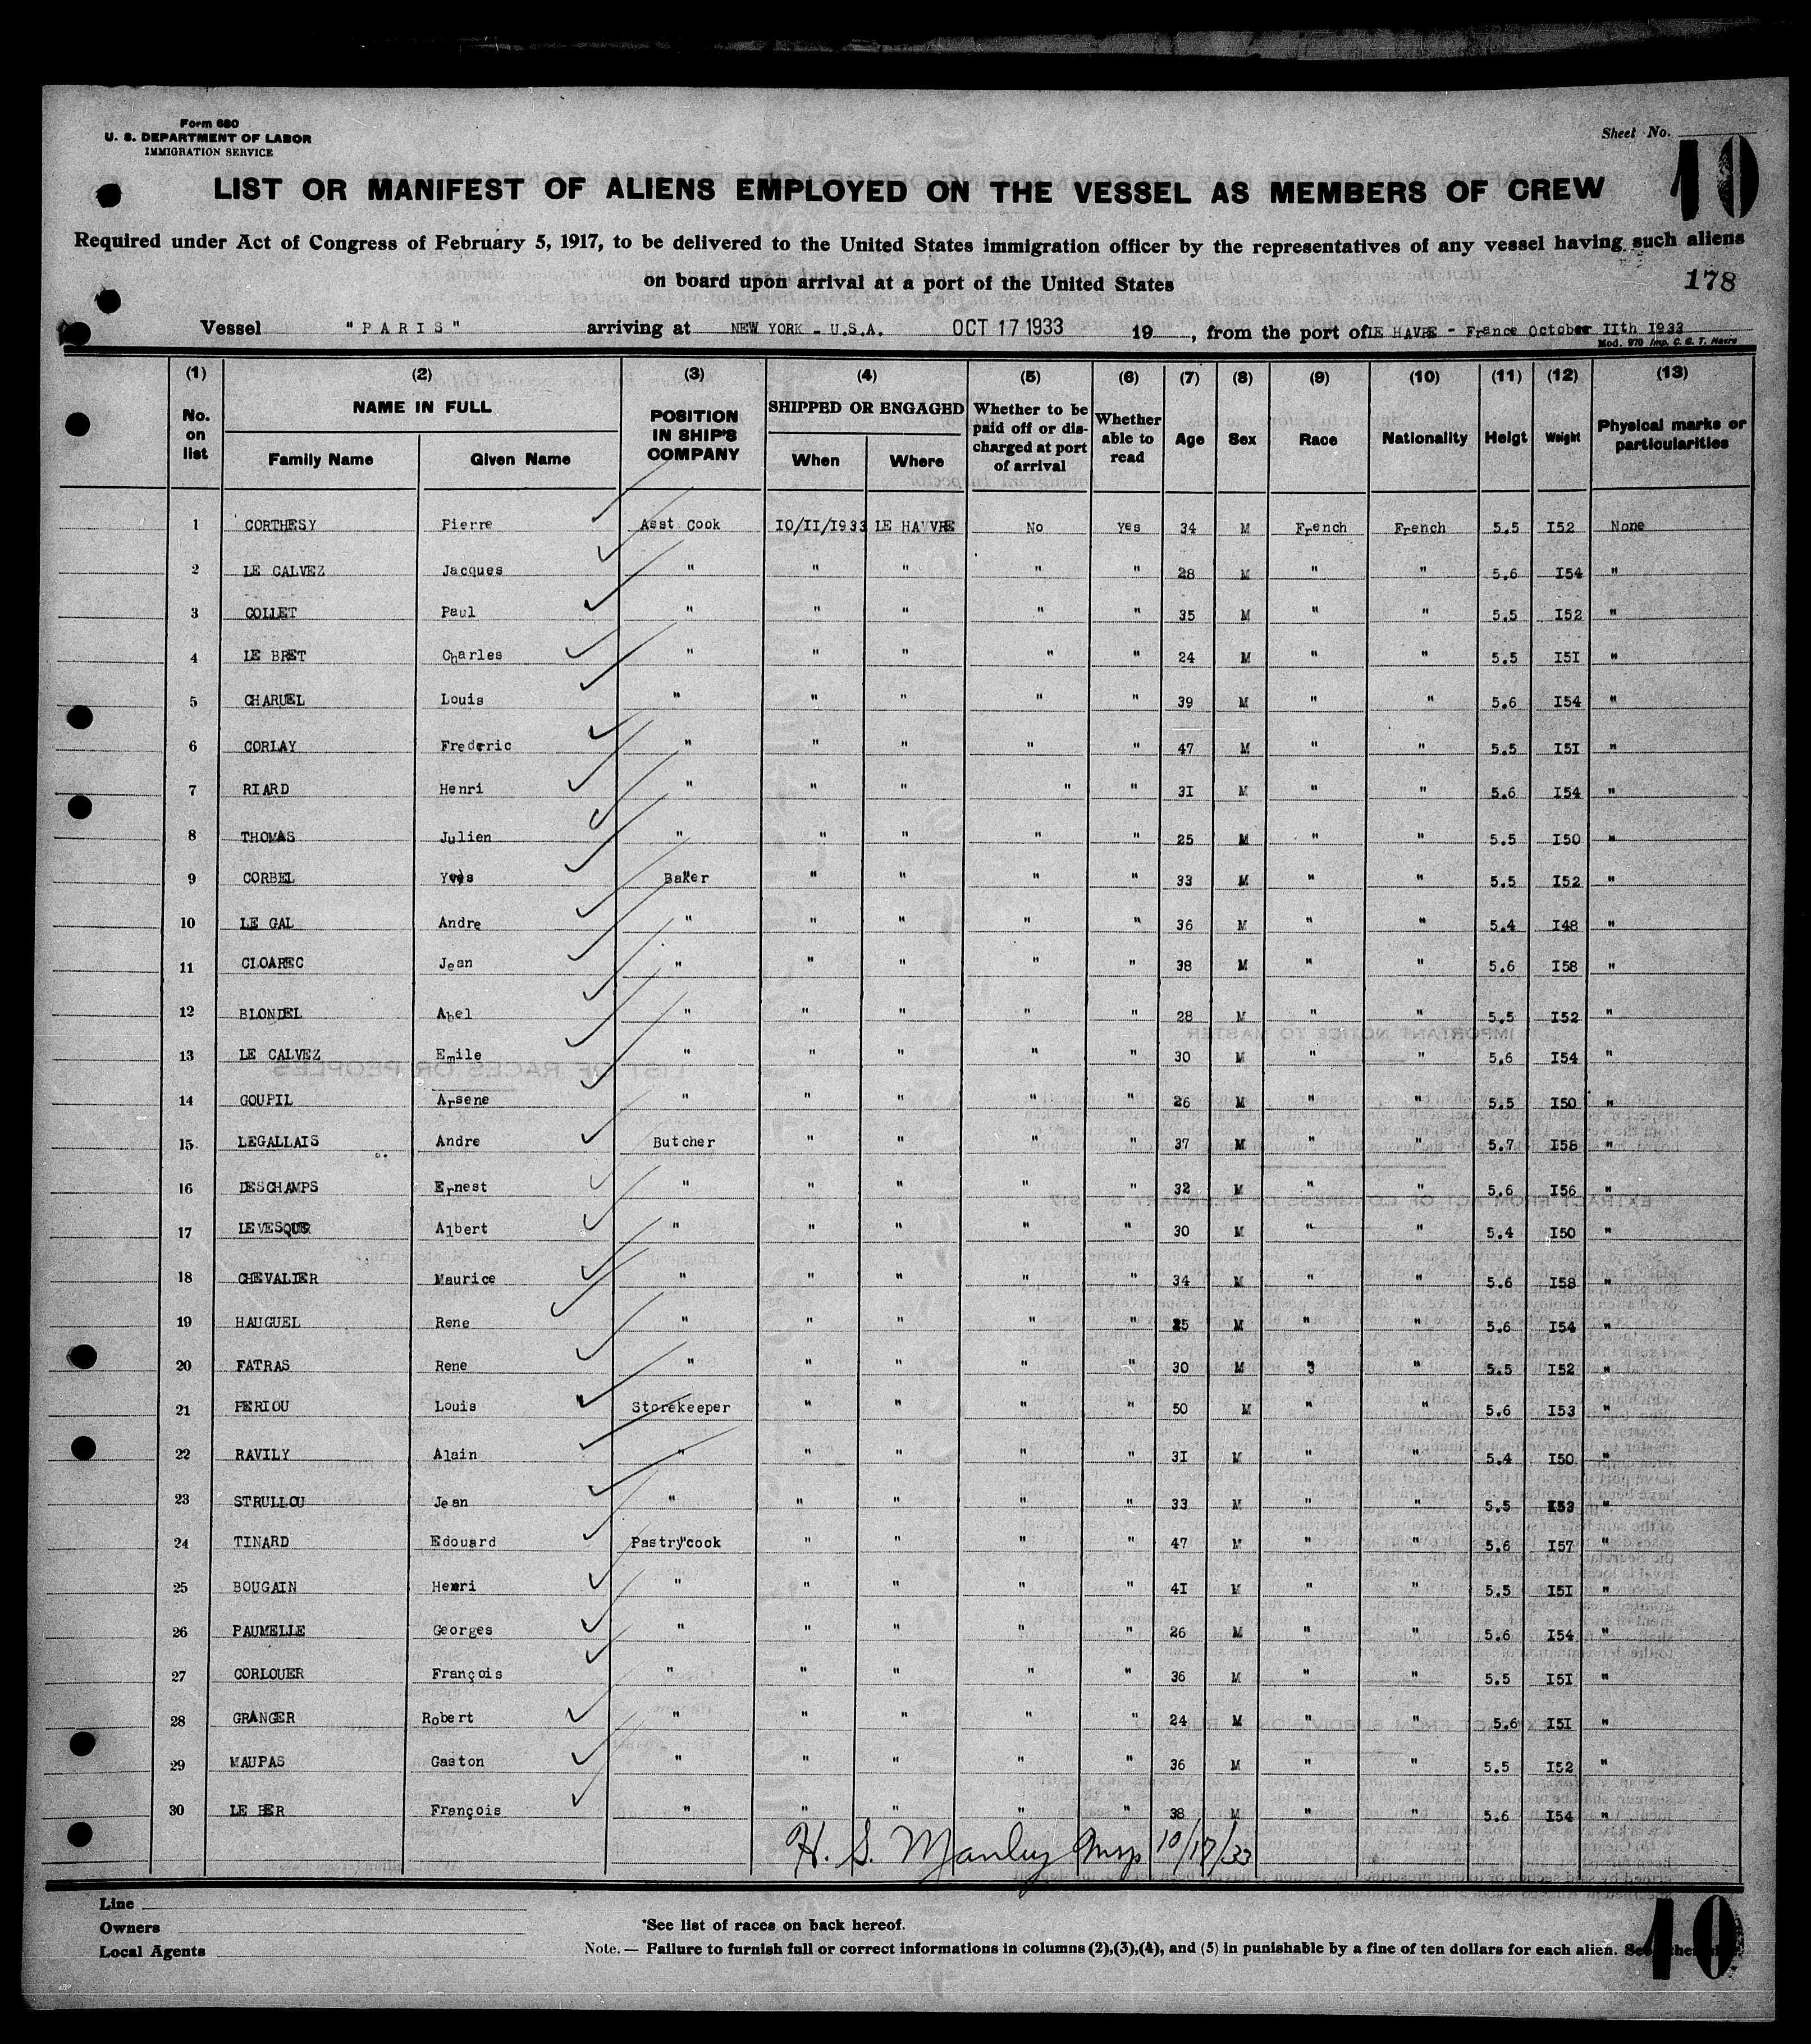 Form 680
U. S. DEPARTMENT OF LABOR
IMMIGRATION SERVICE
Sheet No.
10
LIST OR MANIFEST OF ALIENS EMPLOYED ON THE VESSEL AS MEMBERS OF CREW
Required under Act of Congress of February 5, 1917, to be delivered to the United States immigration officer by the representatives of any vessel having such aliens
on board upon arrival at a port of the United States
178
Vessel "PARIS" arriving at NEW YORK - U.S.A. OCT 17 1933 19 , from the port of LE HAVRE - France October IIth I933
Mod. 970 Imp. C. G. T. Havre
(1) (2) (3) (4) (5) (6) (7) (8) (9) (10) (11) (12) (13)
No. on list NAME IN FULL Family Name Given Name POSITION IN SHIP'S COMPANY SHIPPED OR ENGAGED When Where Whether to be paid off or discharged at port of arrival Whether able to read Age Sex Race Nationality Heigt Weight Physical marks or particularities
1 CORTHESY Pierre Asst Cook IO/II/I933 LE HAVVRE No Yes 34 M French French 5.5 I52 None
2 LE CALVEZ Jacques " " " " " 28 M " " 5.6 I54 "
3 COLLET Paul " " " " " 35 M " " 5.5 I52 "
4 LE BRET Charles " " " " " 24 M " " 5.5 I5I "
5 CHARUEL Louis " " " " " 39 M " " 5.6 I54 "
6 CORLAY Frederic " " " " " 47 M " " 5.5 I5I "
7 RIARD Henri " " " " " 3I M " " 5.6 I54 "
8 THOMAS Julien " " " " " 25 M " " 5.5 I50 "
9 CORBEL Yves Baker " " " " 33 M " " 5.5 I52 "
10 LE GAL Andre " " " " " 36 M " " 5.4 I48 "
11 CLOAREC Jean " " " " " 38 M " " 5.6 I58 "
12 BLONDEL Abel " " " " " 28 M " " 5.5 I52 "
13 LE CALVEZ Emile " " " " " 30 M " " 5.6 I54 "
14 GOUPIL Arsene " " " " " 26 M " " 5.5 I50 "
15 LEGALLAIS Andre Butcher " " " " 37 M " " 5.7 I58 "
16 DESCHAMPS Ernest " " " " " 32 M " " 5.6 I56 "
17 LEVESQUE Albert " " " " " 30 M " " 5.4 I50 "
18 CHEVALIER Maurice " " " " " 34 M " " 5.6 I58 "
19 HAUGUEL Rene " " " " " 25 M " " 5.6 I54 "
20 FATRAS Rene " " " " " 30 M " " 5.5 I52 "
21 PERIOU Louis Storekeeper " " " " 50 M " " 5.6 I53 "
22 RAVILY Alain " " " " " 3I M " " 5.4 I50 "
23 STRULLOU Jean " " " " " 33 M " " 5.5 I53 "
24 TINARD Edouard Pastry cook " " " " 47 M " " 5.6 I57 "
25 BOUGAIN Henri " " " " " 4I M " " 5.5 I5I "
26 PAUMELLE Georges " " " " " 26 M " " 5.6 I54 "
27 CORLOUER François " " " " " 36 M " " 5.5 I5I "
28 GRANGER Robert " " " " " 24 M " " 5.6 I5I "
29 MAUPAS Gaston " " " " " 36 M " " 5.5 I52 "
30 LE BER François " " " " " 38 M " " 5.6 I54 "
H. S. Manley Insp 10/17/33
Line
Owners
Local Agents
*See list of races on back hereof.
Note. — Failure to furnish full or correct informations in columns (2),(3),(4), and (5) in punishable by a fine of ten dollars for each alien.
10